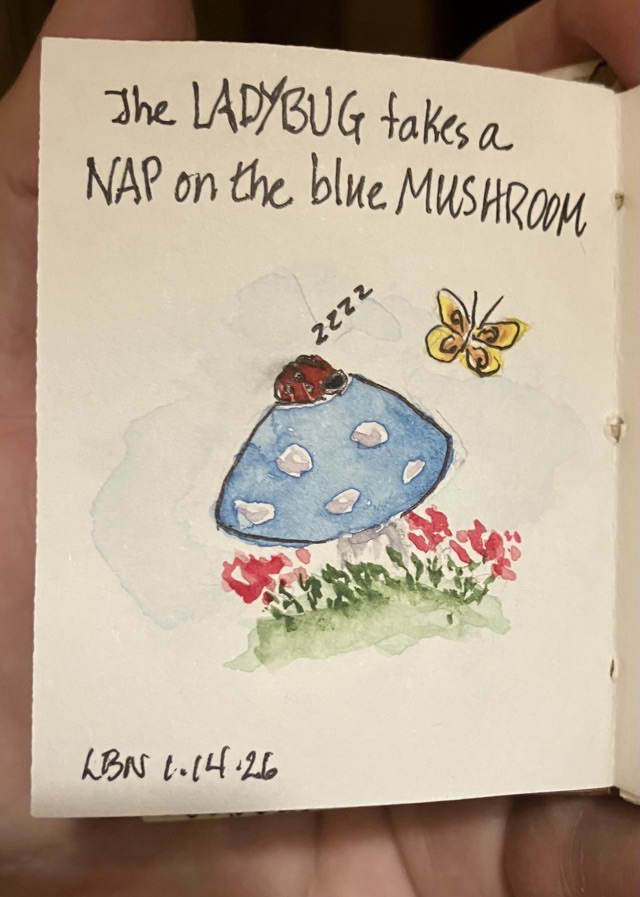 The LADYBUG takes a
NAP on the blue MUSHROOM
zzzz
LBN 1.14.26